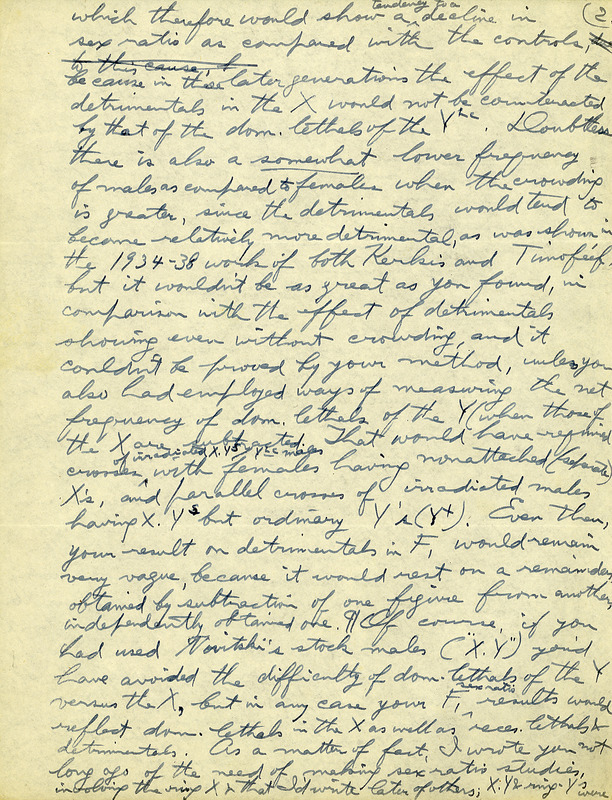 2
tendency for a
which therefore would show a decline in
sex ratio as compared with the controls,
to this cause,
because in these later generations the effect of the
detrimentals in the X would not be counteracted
by that of the dom. lethals of the Y^Lc. Doubtless
there is also a somewhat lower frequency
of males as compared to females when the crowding
is greater, since the detrimentals would tend to
become relatively more detrimental, as was shown in
the 1934-38 work of both Kerkis and Timoféef,
but it wouldn't be as great as you found, in
comparison with the effect of detrimentals
showing even without crowding, and it
couldn't be proved by your method, unless you
also had employed ways of measuring the net
frequency of dom. lethals of the Y (when those of
the X are subtracted. That would have required
of irradiated X.Y^S-Y^Lc males
crosses with females having nonattached (separate)
X's, and parallel crosses of irradiated males
having X.Y^S but ordinary Y's (Y+). Even then,
your result on detrimentals in F1 would remain
very vague, because it would rest on a remainder
obtained by subtraction of one figure from another
independently obtained one. ¶ Of course, if you
had used Novitski's stock males ("X.Y") you'd
have avoided the difficulty of dom. lethals of the Y
sex ratio
versus the X, but in any case your F1 results would
reflect dom. lethals in the X as well as recess. lethals &
detrimentals. As a matter of fact, I wrote you not
long ago of the need of making sex ratio studies,
involving the ring X & that I'd write later of others; X.Y & ring.Y's were